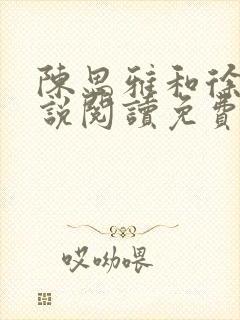 陳思雅和徐
說閱讀免費
哎呦喂